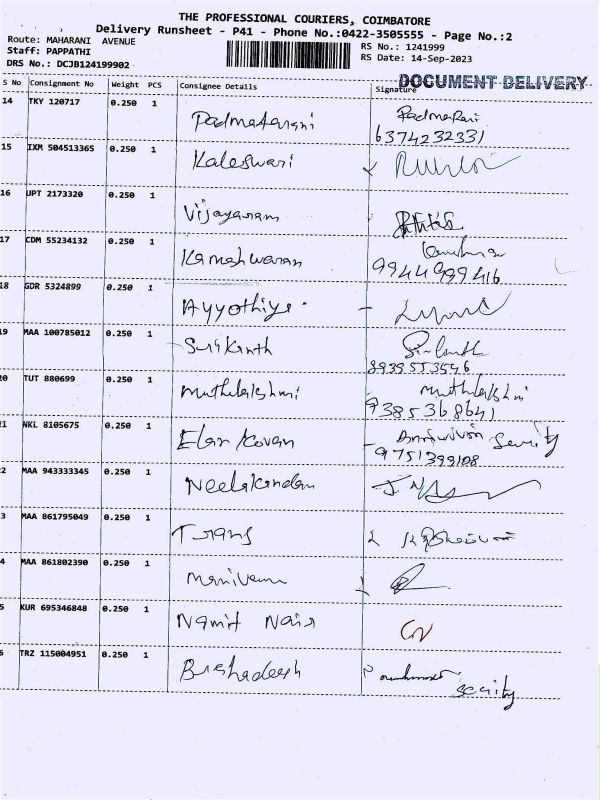 THE PROFESSIONAL COURIERS, COIMBATORE
Delivery Runsheet - P41 - Phone No.:0422-3505555 - Page No.:2
Route: MAHARANI AVENUE
Staff: PAPPATHI
RS No.: 1241999
DRS No.: DCJB124199902
RS Date: 14-Sep-2023
DOCUMENT DELIVERY
S No Consignment No Weight PCS Consignee Details Signature
14 TKY 120717 0.250 1 Padmatarani Padmarani
6374232331
15 IXM 504513365 0.250 1 Kaleswari
16 UPT 2173320 0.250 1 Vijayaram
17 CDM 55234132 0.250 1 Kameshwaran
9944999416
18 GDR 5324899 0.250 1 Ayyothiya
19 MAA 100785012 0.250 1 Srikanth
8939553546
20 TUT 880699 0.250 1 Muthulakshmi Muthulakshmi
9385368641
21 NKL 8105675 0.250 1 Elan Kovan
9751399108
22 MAA 943333345 0.250 1 Neelakandan
3 MAA 861795049 0.250 1
4 MAA 861802390 0.250 1
5 KUR 695346848 0.250 1 Namit Nair
6 TRZ 115004951 0.250 1